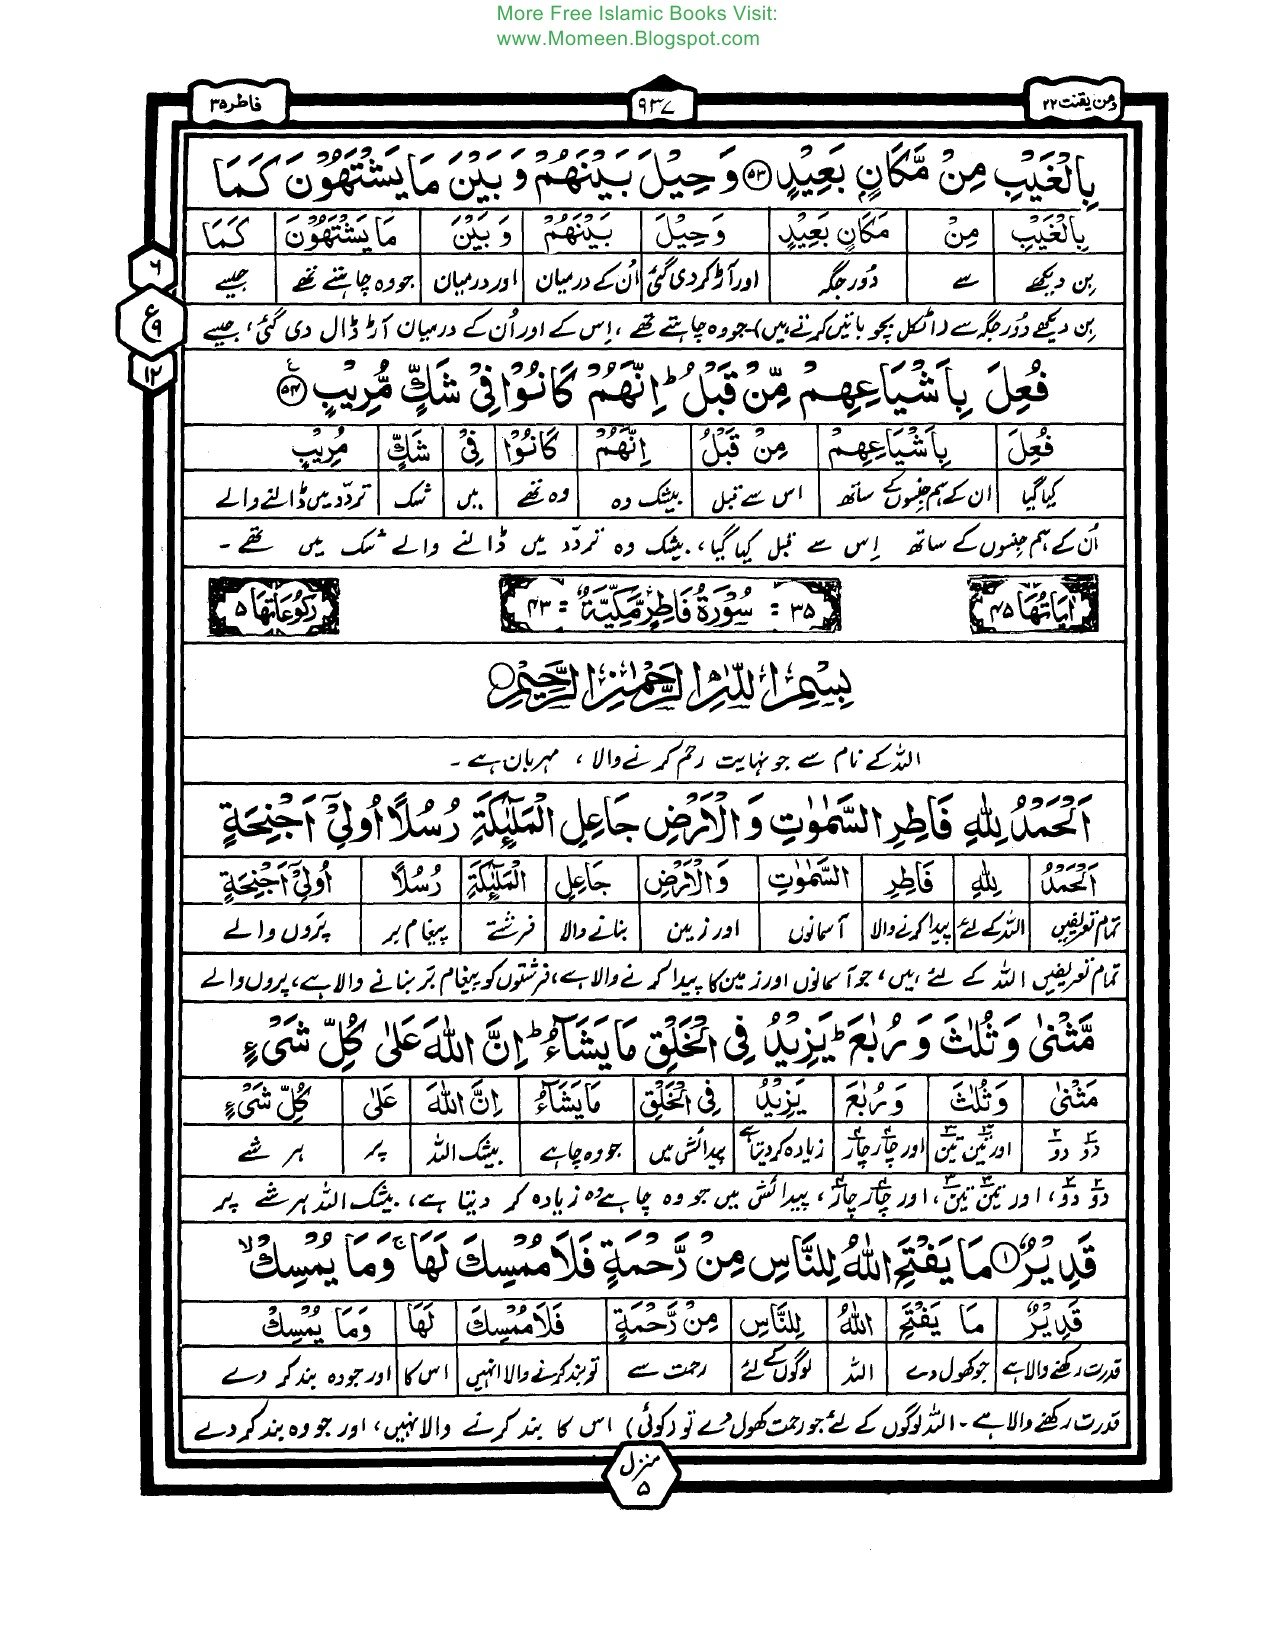 More Free Islamic Books Visit:
www.Momeen.Blogspot.com
ومن یقنت ۲۲
۹۳۷
فاطر ۳۵
بِالْغَیْبِ مِنْ مَّکَانٍ بَعِیْدٍ ۝۵۳ وَ حِیْلَ بَیْنَهُمْ وَ بَیْنَ مَا یَشْتَهُوْنَ کَمَا
بِالْغَیْبِ مِنْ مَکَانٍ بَعِیْدٍ وَحِیْلَ بَیْنَهُمْ وَ بَیْنَ مَا یَشْتَهُوْنَ کَمَا
بن دیکھے سے دُور جگہ اور آڑ کر دی گئی اُن کے درمیان اور درمیان جو وہ چاہتے تھے جیسے
بِن دیکھے دُور جگہ سے (اٹکل پچو باتیں کرتے ہیں) جو وہ چاہتے تھے، اِس کے اور اُن کے درمیان آڑ ڈال دی گئی، جیسے
۶
ع
۹
۱۲
فُعِلَ بِاَشْیَاعِهِمْ مِّنْ قَبْلُ ؕ اِنَّهُمْ کَانُوْا فِیْ شَکٍّ مُّرِیْبٍ ۝۵۴
فُعِلَ بِاَشْیَاعِهِمْ مِنْ قَبْلُ اِنَّهُمْ کَانُوْا فِیْ شَکٍّ مُرِیْبٍ
کیا گیا ان کے ہم جنسوں کے ساتھ اس سے قبل بیشک وہ وہ تھے میں شک تردّد میں ڈالنے والے
اُن کے ہم جنسوں کے ساتھ اِس سے قبل کیا گیا، بیشک وہ تردّد میں ڈالنے والے شک میں تھے۔
اٰیَاتُهَا ۴۵
۳۵ = سُوْرَةُ فَاطِرٍ مَّکِّیَّةٌ = ۴۳
رُکُوْعَاتُهَا ۵
بِسْمِ اللّٰهِ الرَّحْمٰنِ الرَّحِیْمِ
اللہ کے نام سے جو نہایت رحم کرنے والا، مہربان ہے۔
اَلْحَمْدُ لِلّٰهِ فَاطِرِ السَّمٰوٰتِ وَ الْاَرْضِ جَاعِلِ الْمَلٰٓئِکَةِ رُسُلًا اُولِیْۤ اَجْنِحَةٍ
اَلْحَمْدُ لِلّٰهِ فَاطِرِ السَّمٰوٰتِ وَالْاَرْضِ جَاعِلِ الْمَلٰٓئِکَةِ رُسُلًا اُولِیْۤ اَجْنِحَةٍ
تمام تعریفیں اللہ کے لئے پیدا کرنے والا آسمانوں اور زمین بنانے والا فرشتے پیغام بر پَروں والے
تمام تعریفیں اللہ کے لئے ہیں، جو آسمانوں اور زمین کا پیدا کرنے والا ہے، فرشتوں کو پیغام بر بنانے والا ہے، پروں والے
مَّثْنٰی وَ ثُلٰثَ وَ رُبٰعَ ؕ یَزِیْدُ فِی الْخَلْقِ مَا یَشَآءُ ؕ اِنَّ اللّٰهَ عَلٰی کُلِّ شَیْءٍ
مَثْنٰی وَ ثُلٰثَ وَ رُبٰعَ یَزِیْدُ فِی الْخَلْقِ مَا یَشَآءُ اِنَّ اللّٰهَ عَلٰی کُلِّ شَیْءٍ
دو دو اور تین تین اور چار چار زیادہ کر دیتا ہے پیدائش میں جو وہ چاہے بیشک اللہ پر ہر شے
دو دو، اور تین تین، اور چار چار، پیدائش میں جو وہ چاہے وہ زیادہ کر دیتا ہے، بیشک اللہ ہر شے پر
قَدِیْرٌ ۝۱ مَا یَفْتَحِ اللّٰهُ لِلنَّاسِ مِنْ رَّحْمَةٍ فَلَا مُمْسِکَ لَهَا ۚ وَمَا یُمْسِکْ ۙ
قَدِیْرٌ مَا یَفْتَحِ اللّٰهُ لِلنَّاسِ مِنْ رَّحْمَةٍ فَلَا مُمْسِکَ لَهَا وَمَا یُمْسِکْ
قدرت رکھنے والا ہے جو کھول دے اللہ لوگوں کے لئے رحمت سے تو بند کرنے والا نہیں اس کا اور جو وہ بند کر دے
قدرت رکھنے والا ہے۔ اللہ لوگوں کے لئے جو رحمت کھول دے تو (کوئی) اس کا بند کرنے والا نہیں، اور جو وہ بند کر دے
منزل
۵